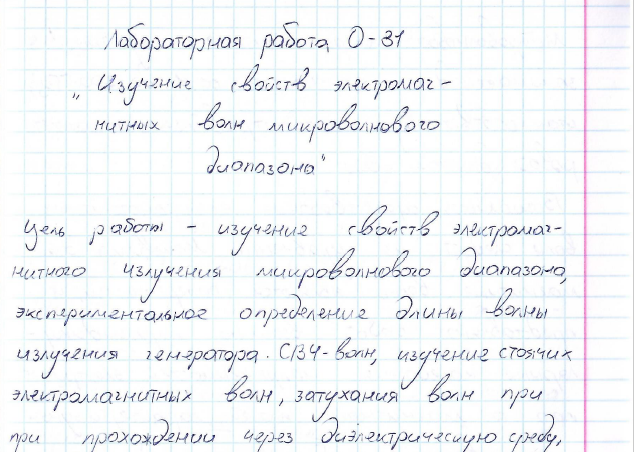 Лабораторная работа О-31
„Изучение свойств электромаг-
нитных волн микроволнового
диапазона"
Цель работы - изучение свойств электромаг-
нитного излучения микроволнового диапазона,
экспериментальное определение длины волны
излучения генератора. СВЧ-волн, изучение стоячих
электромагнитных волн, затухания волн при
при прохождении через диэлектрическую среду,